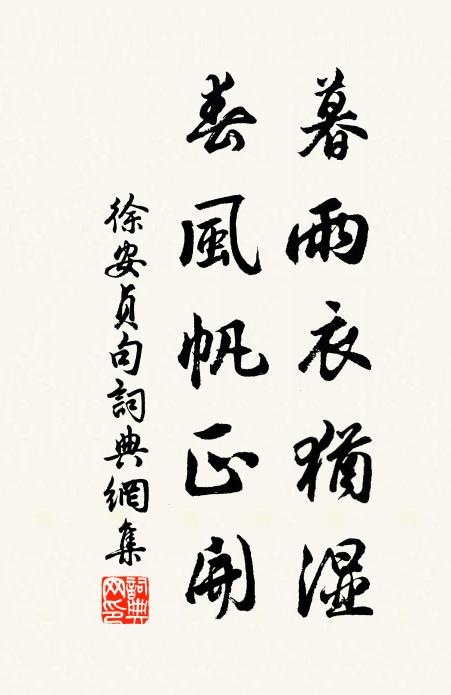 暮雨衣猶湿
春風帆正開
徐安貞句詞典網集
詞典网印